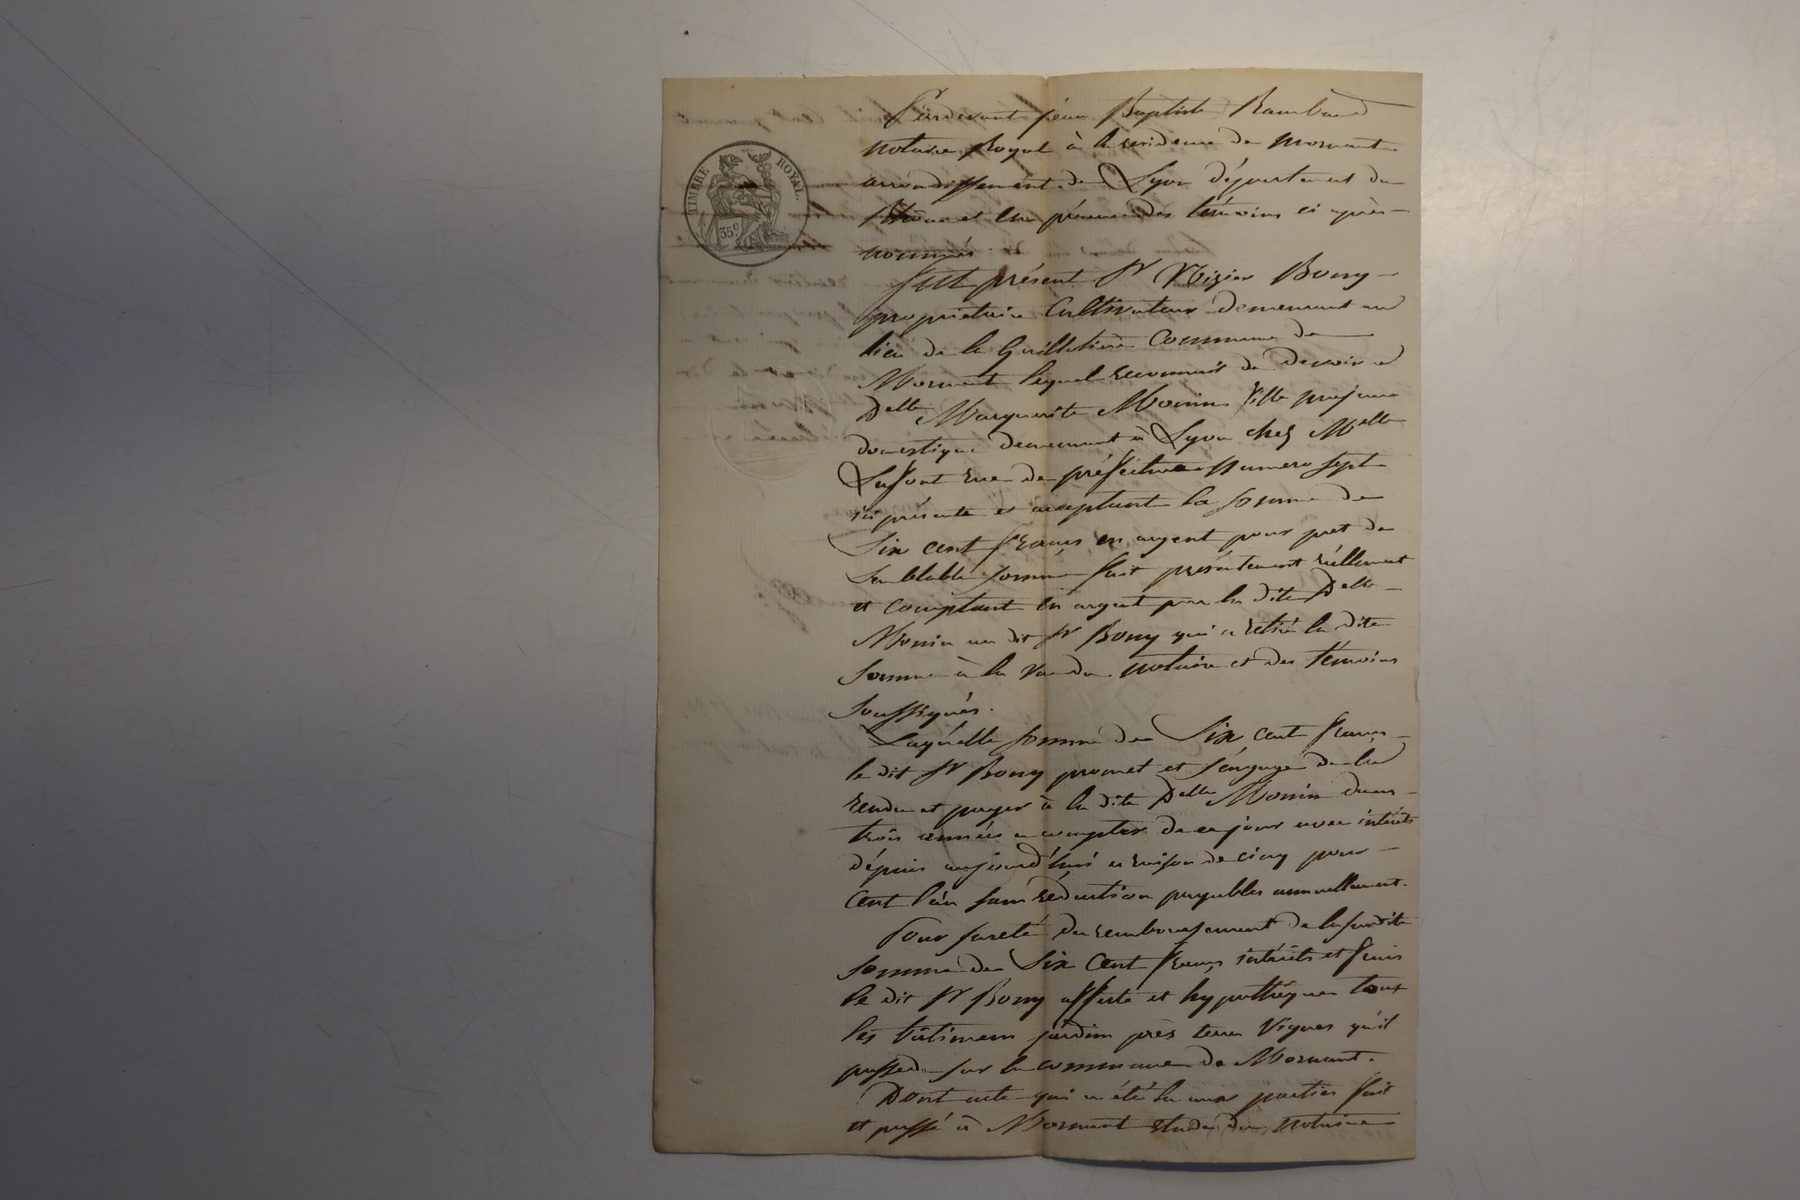 TIMBRE ROYAL
35 c
Pardevant jean Baptiste Rambaud
notaire Royal à la residence de Mornant
arrondissement de Lyon département du
Rhône et en présence des témoins ci après
nommés.
fut présent Sr Nizier Bony
propriétaire Cultivateur demeurant au
lieu de la Guillotière Commune de
Mornant lequel reconnait de devoir a
Delle Marguerite Monin fille majeure
domestique demeurant à Lyon chez Melle
Lafont rue de préfecture Numero sept
ici présente et acceptant la somme de
Six cent francs en argent pour pret de
Semblable somme fait présentement réellement
et comptant en argent par la dite Delle
Monin au dit Sr Bony qui a retiré la dite
somme à la vue du notaire et des témoins
soussignés.
Laquelle somme de Six cent francs
le dit Sr Bony promet et s'engage de la
rendre et payer à la dite Delle Monin dans
trois années a compter de ce jour avec intérêts
dépuis aujourd'hui a raison de cinq pour
cent l'an sans réduction payables annuellement.
Pour sureté du remboursement de la susdite
somme de Six Cent francs intérêts et frais
le dit Sr Bony affecte et hypothèque tous
les bâtimens jardin près terre Vignes qu'il
possede sur la commune de Mornant.
Dont acte qui a été lu aux parties fait
et passé à Mornant Etude du Notaire